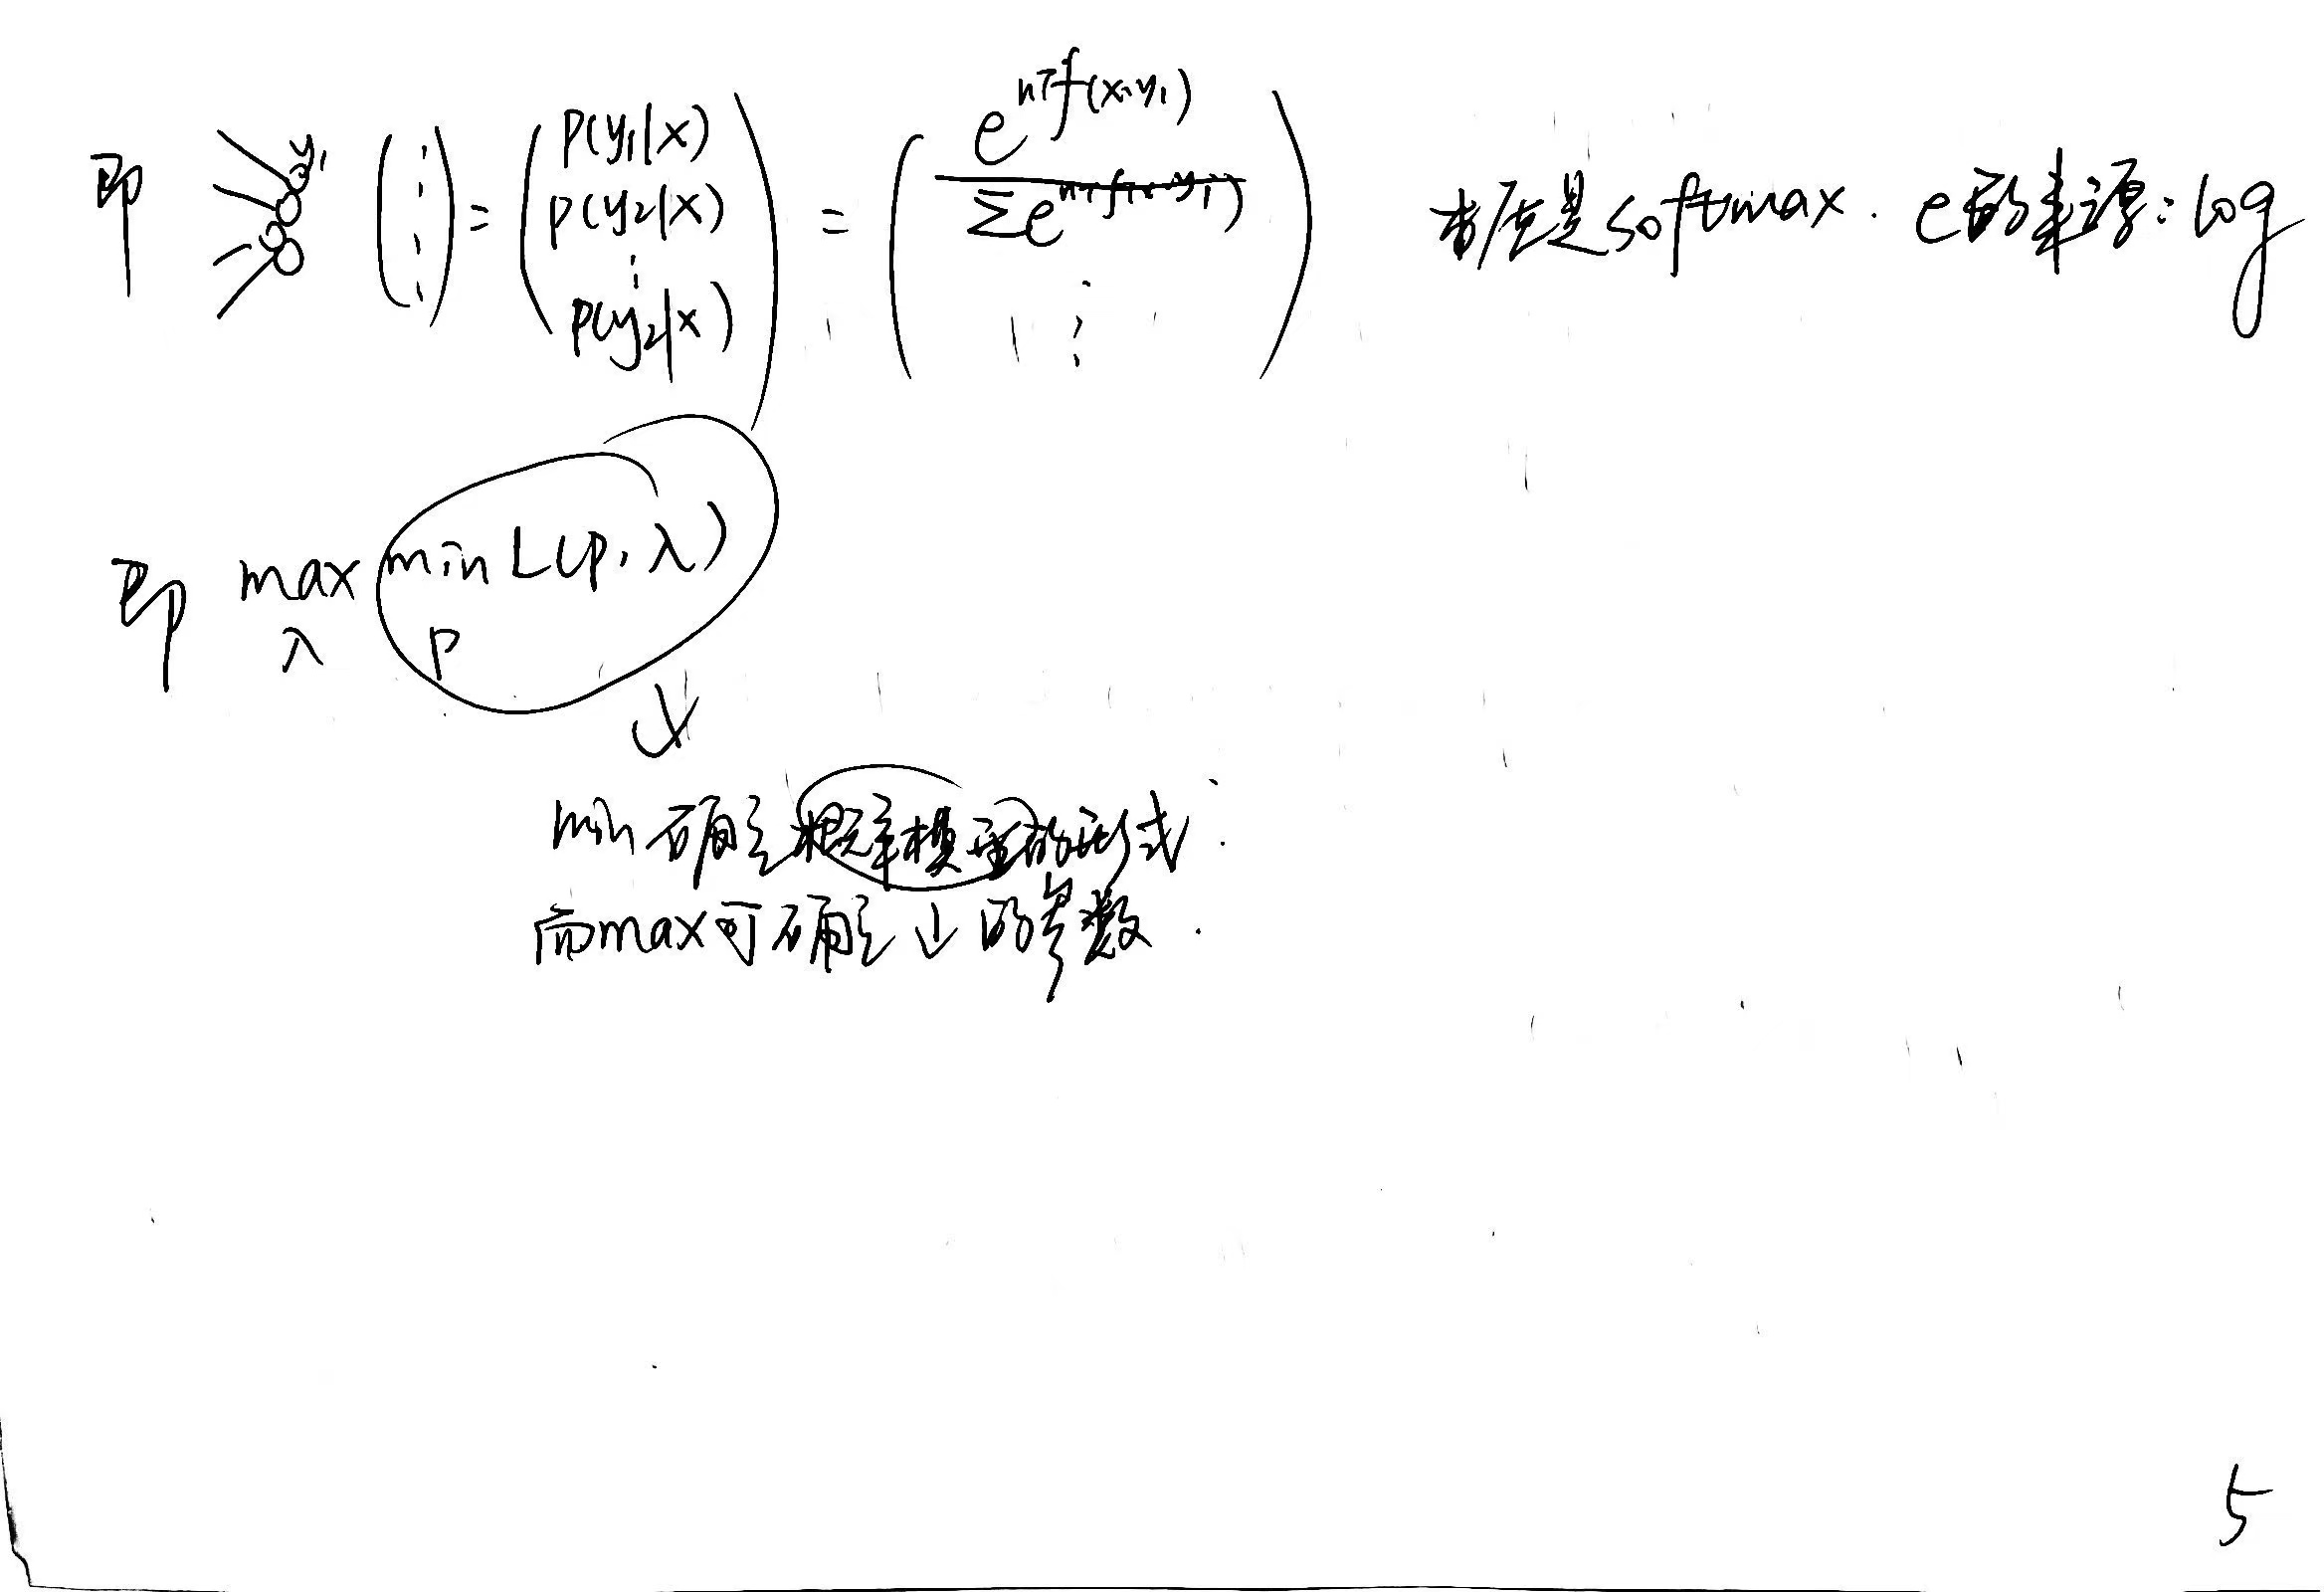 即 y₁ ( ⋮ ) = ( P(y₁|x) P(y₂|x) ⋮ P(y₂|x) ) = ( e^{η^T f(x·y₁)} / Σe^{η^T f(x·y_i)} ⋮ ) 本质是softmax. e的来源: log
即 max_λ min_P L(P, λ)
↓
min 确定概率模型的形式.
而max可确定 ↓ 的参数.
5